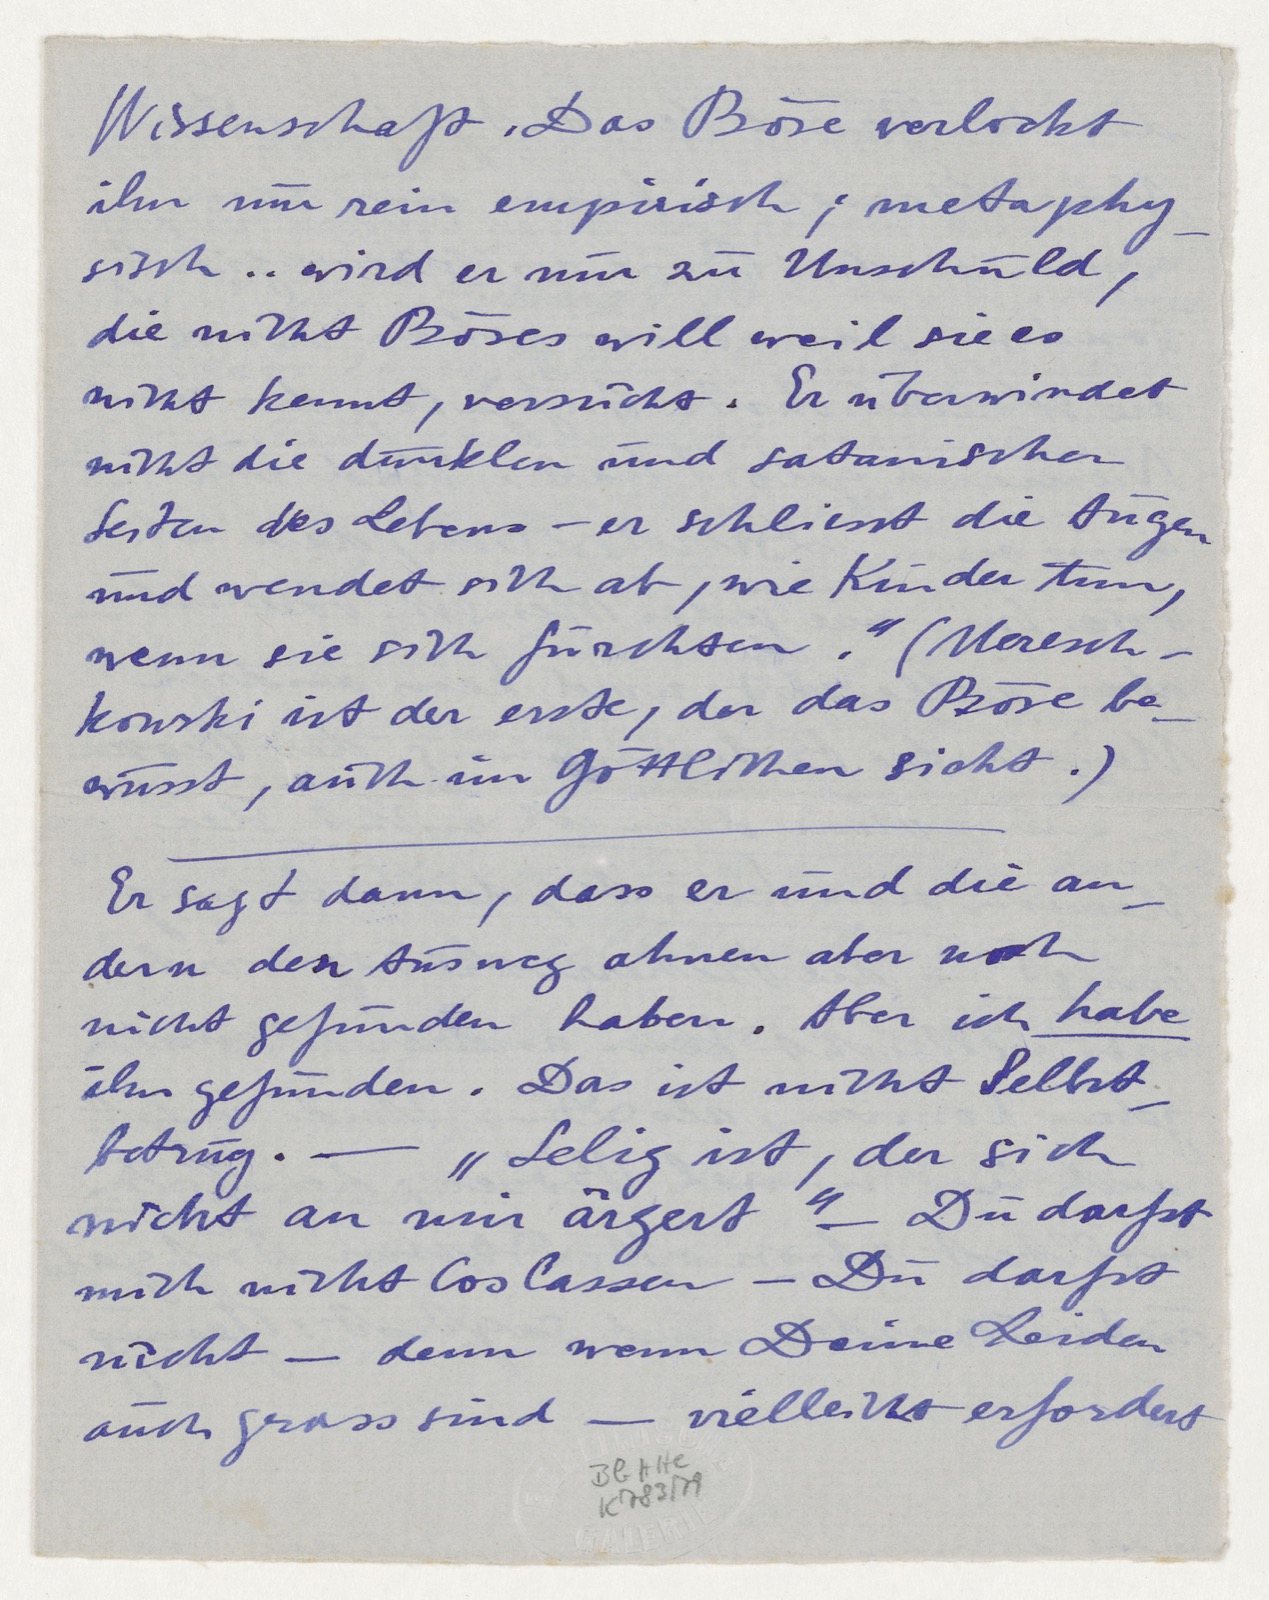 Wissenschaft. Das Böse verlockt
ihn nur rein empirisch; metaphy-
sisch .. wird er nur zu Unschuld,
die nicht Böses will weil sie es
nicht kennt, versucht. Er überwindet
nicht die dunklen und satanischen
Seiten des Lebens – er schliesst die Augen
und wendet sich ab, wie Kinder tun,
wenn sie sich fürchten." (Meresch-
kowski ist der erste, der das Böse be-
wusst, auch im Göttlichen sieht.)
Er sagt dann, dass er und die an-
dern den Ausweg ahnen aber noch
nicht gefunden haben. Aber ich habe
ihn gefunden. Das ist nicht Selbst-
betrug. — „Selig ist, der sich
nicht an mir ärgert" – Du darfst
mich nicht loslassen – Du darfst
nicht – denn wenn Deine Leiden
auch gross sind — vielleicht erfordert
BG HHC
K783/79
GALERIE